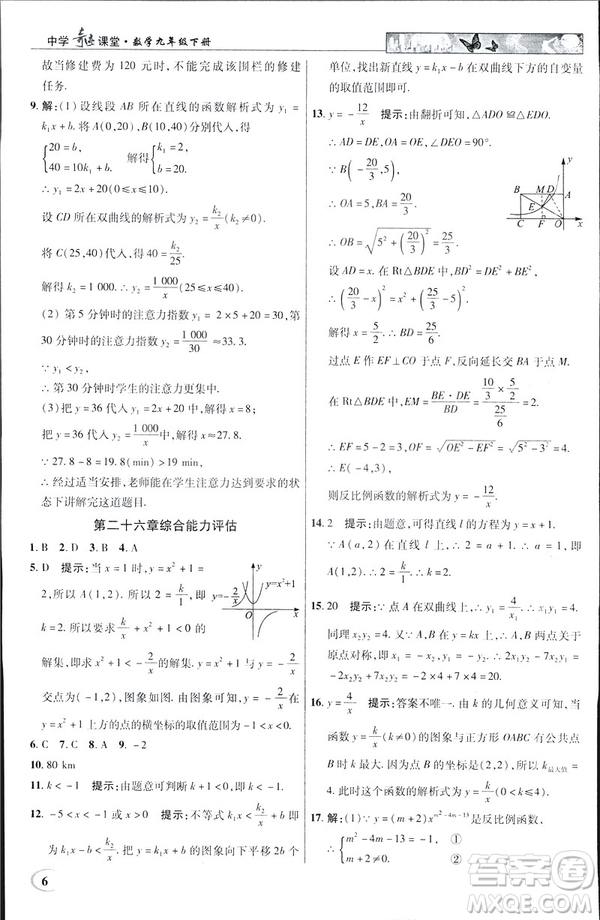 中学奇迹课堂·数学九年级下册
故当修建费为 120 元时,不能完成该围栏的修建
任务.
9. 解:(1) 设线段 AB 所在直线的函数解析式为 y₁ =
k₁x + b. 将 A(0,20),B(10,40)分别代入,得
{20 = b, 40 = 10k₁ + b. 解得 {k₁ = 2, b = 20.
∴ y₁ = 2x + 20.
设 CD 所在双曲线的解析式为 y₂ = k₂/x.
将 C(25,40)代入,得 40 = k₂/25.
解得 k₂ = 1 000. ∴ y₂ = 1 000/x (25≤x≤40).
(2) 第 5 分钟时的注意力 y₁ = 2×5 + 20 = 30,第
30 分钟时的注意力 y₂ = 1 000/30 ≈ 33.3.
∴ 第 30 分钟时学生的注意力更集中.
(3) 把 y = 36 代入 y₁ = 2x + 20,得 x = 8;
把 y = 36 代入 y₂ = 1 000/x,得 x ≈ 27.8.
∵ 27.8 - 8 = 19.8(分钟) > 17(分钟),
∴ 经过适当安排,老师能在学生注意力达到所需状
态下讲解完这道题目.
第二十六章综合能力评估
1. B 2. D 3. B 4. A
5. D 提示:当 x = 1 时,y = x² + 1
= 2,所以 A(1,2). 所以
k = 2. 所以要求关于 x 的不等
式 x² + 1 < -k/x 的解集,
即求 x² + 1 < -2/x 的解集.
y = x² + 1 与 y = -2/x 的
交点为(-1,2),图象如图. 由图象可知,y = -2/x 在
y = x² + 1 上方的点的横坐标的取值范围是 -1 < x < 0.
y=x²+1
y
O
x
6. C 7. C 8. A 9. -2
10. 80 km
11. k < -1 提示:由题意可判断 k + 1 < 0,∴ k < -1.
12. -5 < x < -1 或 x > 0 提示:不等式 k₂/x < k₁x + b 即
为 k₁x - b < k₂/x,即将 y = k₁x + b 的图象向下平移 2b 个
6
单位,得出新直线 y = k₁x - b 在双曲线下方的自变量
的取值范围即可.
13. y = -12/x 提示:由翻折可知,△ADO ≌ △EDO.
∴ AD = DE,OA = OE,∠OAD = ∠OED = 90°.
∵ B(-20/3,5),
∴ OA = 5,AB = 20/3.
∴ OB = √(5² + (20/3)²) = 25/3.
y
B M D A
E
C F O x
设 AD = x. 在 Rt△BDE 中,BE² + DE² = BD²,
∴ (25/3 - 5)² + x² = (20/3 - x)².
解得 x = 5/2. ∴ BD = 20/3 - 5/2 = 25/6.
过点 E 作 EF⊥x 轴于点 F,反向延长交 BA 于点 M.
在 Rt△BDE 中,EM = BE·DE/BD = (10/3 × 5/2)/(25/6) = 2.
∴ EF = 5 - 2 = 3. ∴ OF = √(OE² - EF²) = √(5² - 3²) = 4.
∴ E(-4,3).
则反比例函数的解析式为 y = -12/x.
14. 2 提示:由题意,可知直线 l 的方程为 y = x + 1.
∵ A(a,2)在直线 l 上,∴ 2 = a + 1. ∴ a = 1,即
A(1,2). ∴ 2 = k/1. ∴ k = 2.
15. 20 提示:∵ 点 A 在双曲线上,∴ y₁ = 4/x₁. ∴ x₁y₁ = 4.
同理 x₂y₂ = 4. ∵ y = kx 与 y = 4/x 的两交点关于
原点对称,∴ A(-x₂,-y₂). ∴ 2x₁y₂ - 7x₂y₁ = -2x₂y₂
+ 7x₂y₂ = -2×4 + 7×4 = 20.
16. y = 4/x 提示:答案不唯一. 由 k 的几何意义可知,当
反比例函数的图象与正方形 OABC 有公共点时,
∵ 点 B 的坐标是(2,2),所以 k最大值 = 2×2 =
4. 故函数的解析式可以是 y = 4/x.
17. 解:(1) ∵ 函数 y = (m + 2)x^(m²-4m-13) 是反比例函数,
∴ {m² - 4m - 13 = -1, ① m + 2 ≠ 0. ②